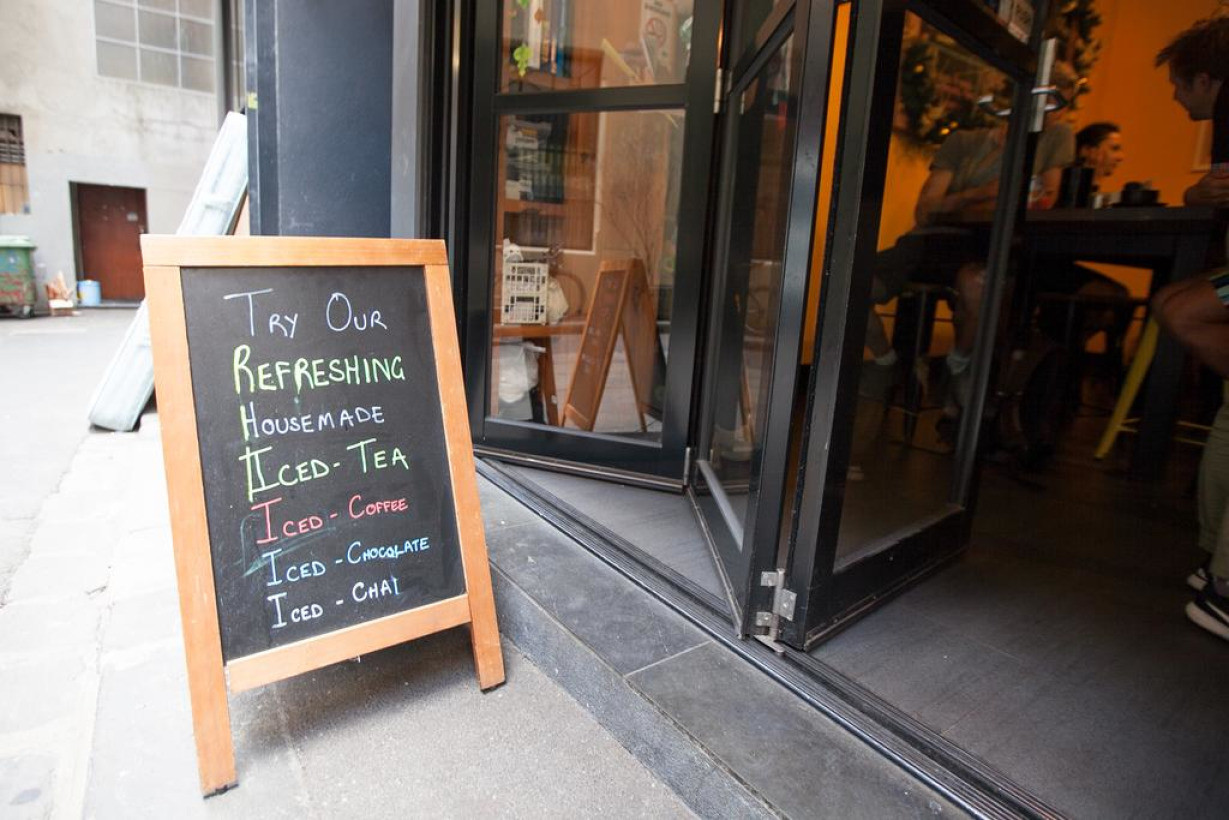 Try Our
Refreshing
Housemade
Iced - Tea
Iced - Coffee
Iced - Chocolate
Iced - Chai